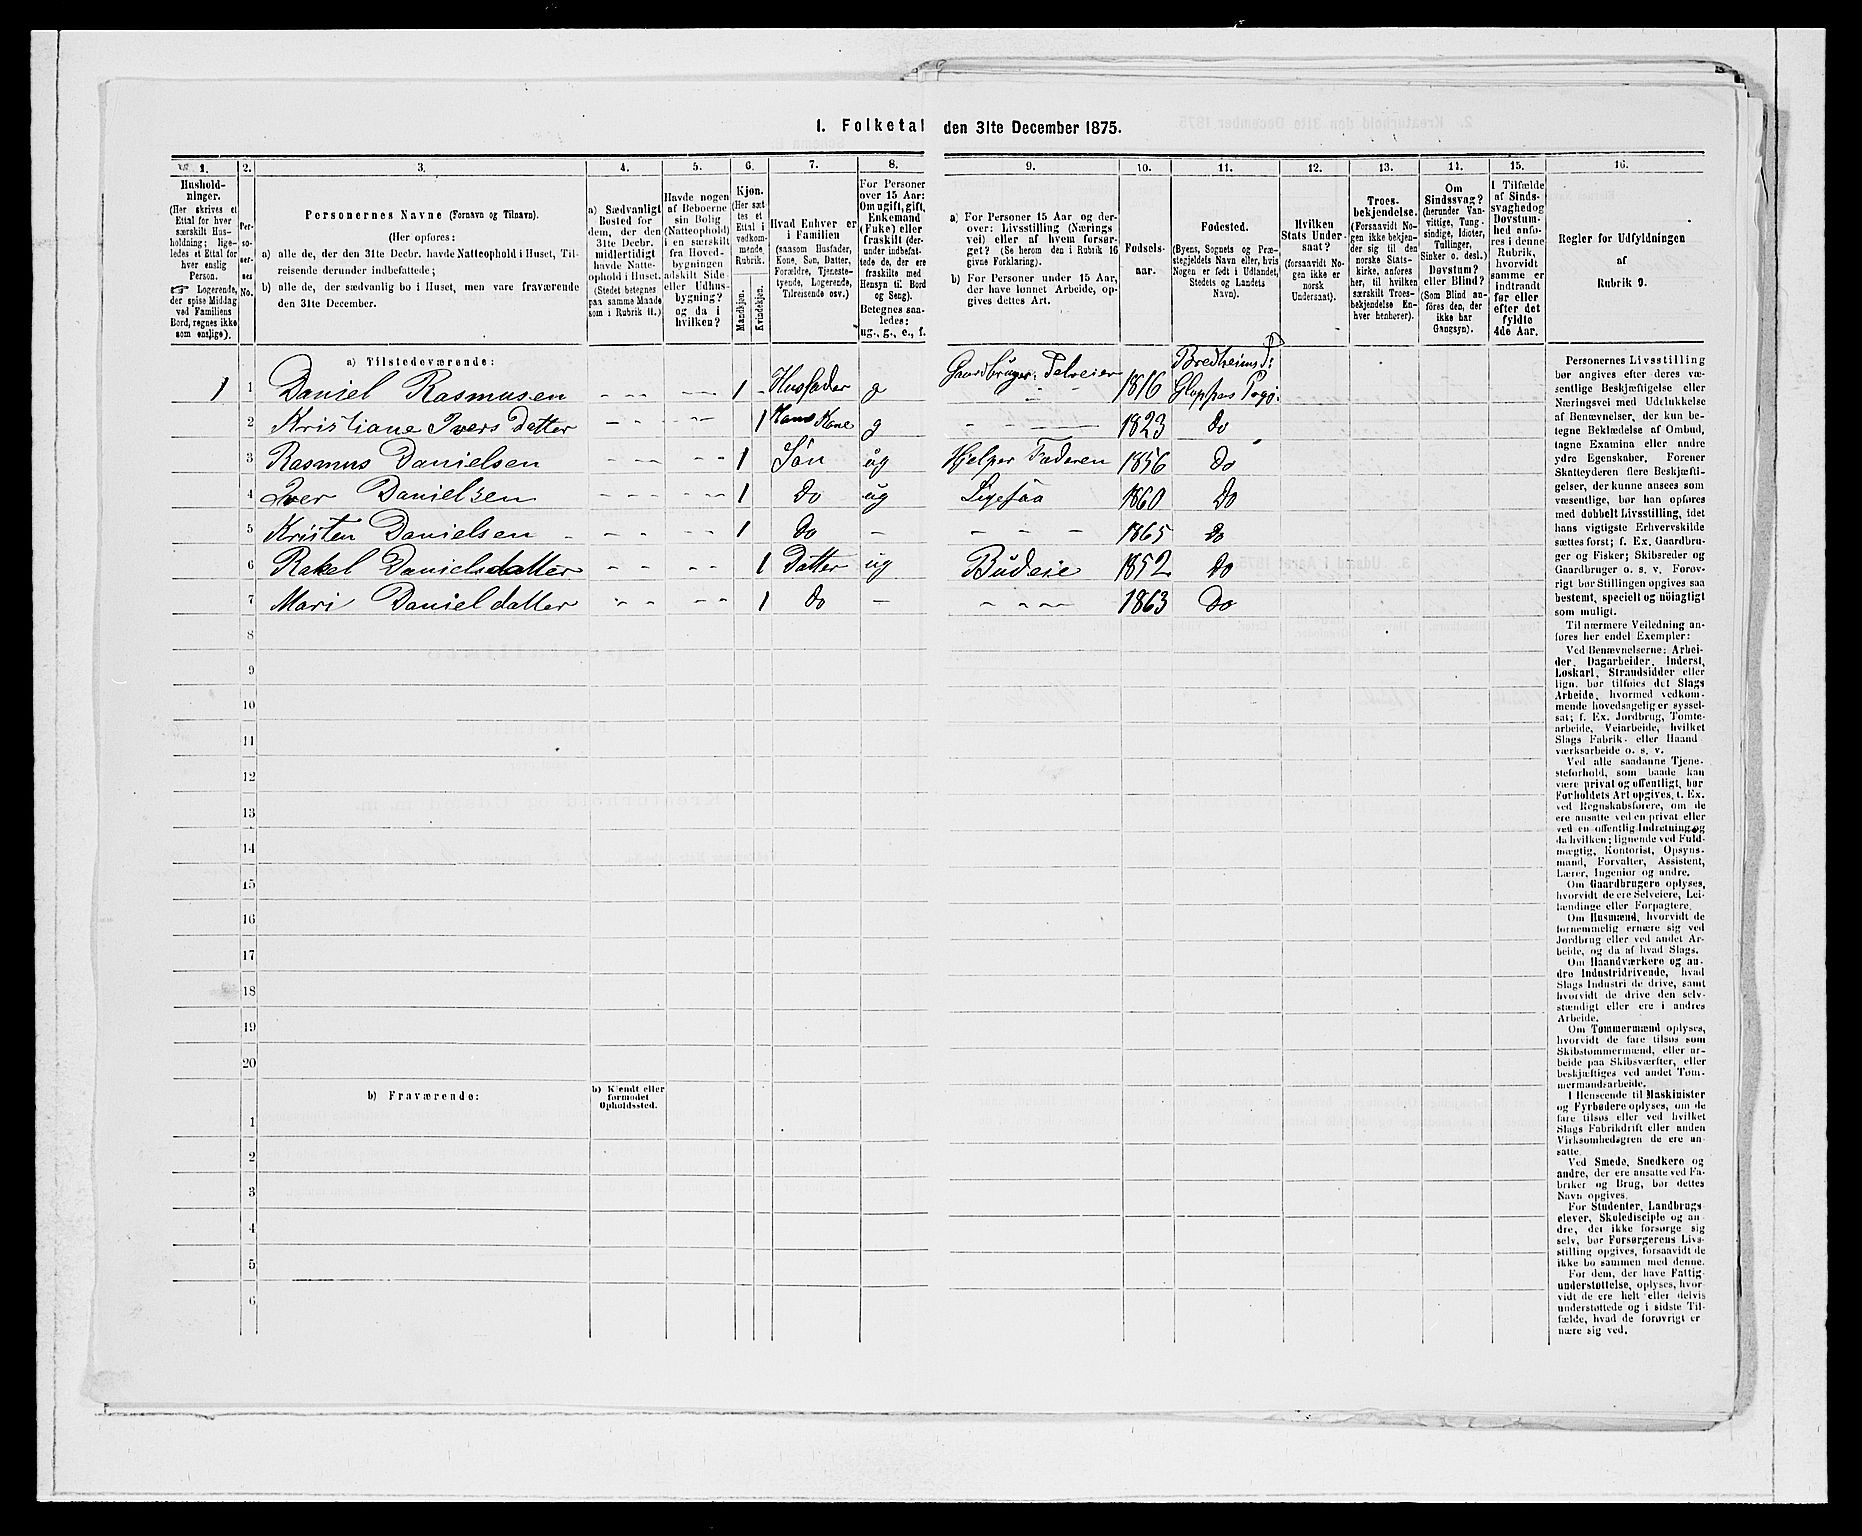 I. Folketal den 31te December 1875.
1. 2. 3. 4. 5. 6. 7. 8. 9. 10. 11. 12. 13. 14. 15. 16.
Hushold-
ninger.
(Her skrives et
Ettal for hver
særskilt Hus-
holdning; lige-
ledes et Ettal for
hver enslig
Person.
☞ Logerende,
der spise Middag
ved Familiens
Bord, regnes ikke
som enslige).
Per-
so-
ner-
nes
No.
Personernes Navne (Fornavn og Tilnavn).
(Her opføres:
a) alle de, der den 31te Decbr. havde Natteophold i Huset, Til-
reisende derunder indbefattede;
b) alle de, der sædvanlig bo i Huset, men vare fraværende
den 31te December.
a) Sædvanligt
Bosted for
dem, der den
31te Decbr.
midlertidigt
havde Natte-
ophold i Huset.
(Stedet betegnes
paa samme Maade
som i Rubrik 11.)
Havde nogen
af Beboerne
sin Bolig
(Natteophold)
i en særskilt
fra Hoved-
bygningen
adskilt Side
eller Udhus-
bygning?
og da i
hvilken?
Kjøn.
(Her sæt-
tes et
Ettal i
vedkom-
mende
Rubrik.
Mandkjøn.
Kvindekjøn.
Hvad Enhver er
i Familien
(saasom Husfader,
Kone, Søn, Datter,
Forældre, Tjeneste-
tyende, Logerende,
Tilreisende osv.)
For Personer
over 15 Aar:
Om ugift, gift,
Enkemand
(Enke) eller
fraskilt (der-
under indbefat-
tede de, der ere
fraskilte med
Hensyn til Bord
og Seng).
Betegnes saa-
ledes:
ug., g., e., f.
a) For Personer 15 Aar og der-
over: Livsstilling (Nærings
vei) eller af hvem forsør-
get? (Se herom den i Rubrik 16
givne Forklaring).
b) For Personer under 15 Aar,
der have lønnet Arbeide, op-
gives dettes Art.
Fødsels-
aar.
Fødested.
(Byens, Sognets og Præ-
stegjeldets Navn eller, hvis
Nogen er født i Udlandet,
Stedets og Landets
Navn).
Hvilken
Stats Under-
saat?
(forsaavidt No-
gen ikke er
norsk
Undersaat).
Troes-
bekjendelse.
(Forsaavidt No-
gen ikke bekjen-
der sig til den
norske Stats-
kirke, anføres
her, til hvilken
særskilt Troes-
bekjendelse En-
hver henhører).
Om
Sindssvag?
(herunder Van-
vittige, Tung-
sindige, Idioter,
Tullinger,
Sinker o. desl.)
Døvstum?
eller Blind?
(Som Blind an-
føres den, der
ikke har
Gangsyn).
I Tilfælde
af Sinds-
svaghed og
Døvstum-
hed anfø-
res i denne
Rubrik,
hvorvidt
samme er
indtraadt
før eller
efter det
fyldte
4de Aar.
Regler for Udfyldningen
af
Rubrik 9.
a) Tilstedeværende:
Bredheims S:
1 1 Daniel Rasmusen - - - - - - 1 - Husfader g Gaardbruger Selveier 1816 Gloppens Prgj:
2 Kristiane Ivers Datter - - - - - 1 Hans Kone g - - - 1823 Do
3 Rasmus Danielsen - - - - - 1 Søn ug Hjelper Faderen 1856 Do
4 Iver Danielsen - - - - - 1 Do ug Ligesaa 1860 Do
5 Kristen Danielsen - - - - - 1 Do - - - - 1865 Do
6 Rakel Danielsdatter - - - - 1 Datter ug Budeie 1852 Do
7 Mari Danieldatter - - - - 1 Do - - - - 1863 Do
8
9
10
11
12
13
14
15
16
17
18
19
20
b) Fraværende:
b) Kjendt eller
formodet
Opholdssted.
1
2
3
4
5
6
Personernes Livsstilling
bør angives efter deres væ-
sentlige Beskjæftigelse eller
Næringsvei med Udelukkelse
af Benævnelser, der kun be-
tegne Beklædelse af Ombud,
tagne Examina eller andre
ydre Egenskaber. Forener
Skatteyderen flere Beskjæfti-
gelser, der kunne ansees som
væsentlige, bør han opføres
med dobbelt Livsstilling, idet
hans vigtigste Erhvervskilde
sættes først; f. Ex. Gaardbru-
ger og Fisker; Skibsreder og
Gaardbruger o. s. v. Forøv-
rigt bør Stillingen opgives saa
bestemt, specielt og nøiagtigt
som muligt.
Til nærmere Veiledning an-
føres her endel Exempler:
Ved Benævnelserne: Arbei-
der, Dagarbeider, Inderst,
Løskarl, Strandsidder eller
lign. bør tilføies det Slags
Arbeide, hvormed vedkom-
mende hovedsagelig er syssel-
sat; f. Ex. Jordbrug, Tomte-
arbeide, Veiarbeide, hvilket
Slags Fabrik- eller Haand-
værksarbeide o. s. v.
Ved alle saadanne Tjene-
steforhold, som baade kan
være privat og offentligt, bør
Forholdets Art opgives, t. Ex.
ved Regnskabsførere, om de
ere ansatte ved en privat eller
ved en offentlig Indretning og
da hvilken; lignende ved Fuld-
mægtig, Kontorist, Opsyns-
mand, Forvalter, Assistent,
Lærer, Ingeniør og andre.
Om Gaardbrugere oplyses,
hvorvidt de ere Selveiere, Lei-
lændinge eller Forpagtere.
Om Husmænd, hvorvidt de
fornemmelig ernære sig ved
Jordbrug eller ved andet Ar-
beide, og da af hvad Slags.
Om Haandværkere og an-
dre Industridrivende, hvad
Slags Industri de drive, samt
hvorvidt de drive den selv-
stændigt eller ere i andres
Arbeide.
Om Tømmermænd oplyses,
hvorvidt de fare tilsøs som
Skibstømmermænd, eller ar-
beide paa Skibsværfter, eller
beskjæftiges ved andet Tøm-
mermandsarbeide.
I Henseende til Maskinister
og Fyrbødere oplyses, om de
fare tilsøs eller ved hvilket
Slags Fabrikdrift eller anden
Virksomhedsgren de ere an-
satte.
Ved Smede, Snedkere og
andre, der ere ansatte ved Fa-
briker og Brug, bør dettes
Navn opgives.
For Studenter, Landbrugs-
elever, Skoledisciple og an-
dre, der ikke forsørge sig
selv, bør Forsørgerens Livs-
stilling opgives, forsaavidt de
ikke bo sammen med denne.
For dem, der have Fattig-
understøttelse, oplyses, hvor-
vidt de ere helt eller delvis
understøttede og i sidste Til-
fælde, hvad de forøvrigt er
nære sig ved.